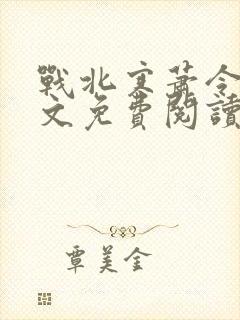 戰北寒蕭令
文免費閱讀
覃美金